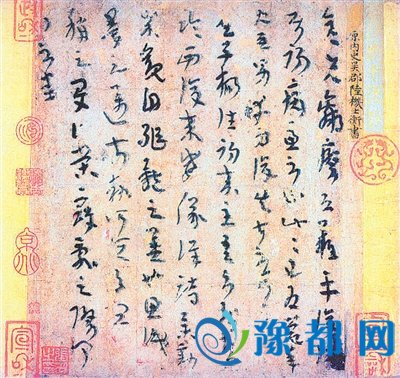 原内史吴郡陸機士衡書
彦先羸瘵恐難平復
往屬初病慮不止此此已為慶
承使唯男幸為復失前憂耳
吴子楊往初來主吾不能盡
臨西復來威儀詳跱舉動
成觀自軀體之美也思識
量之邁前執所恒有宜
稱之夏伯榮寇亂之際聞
問不悉
豫都网